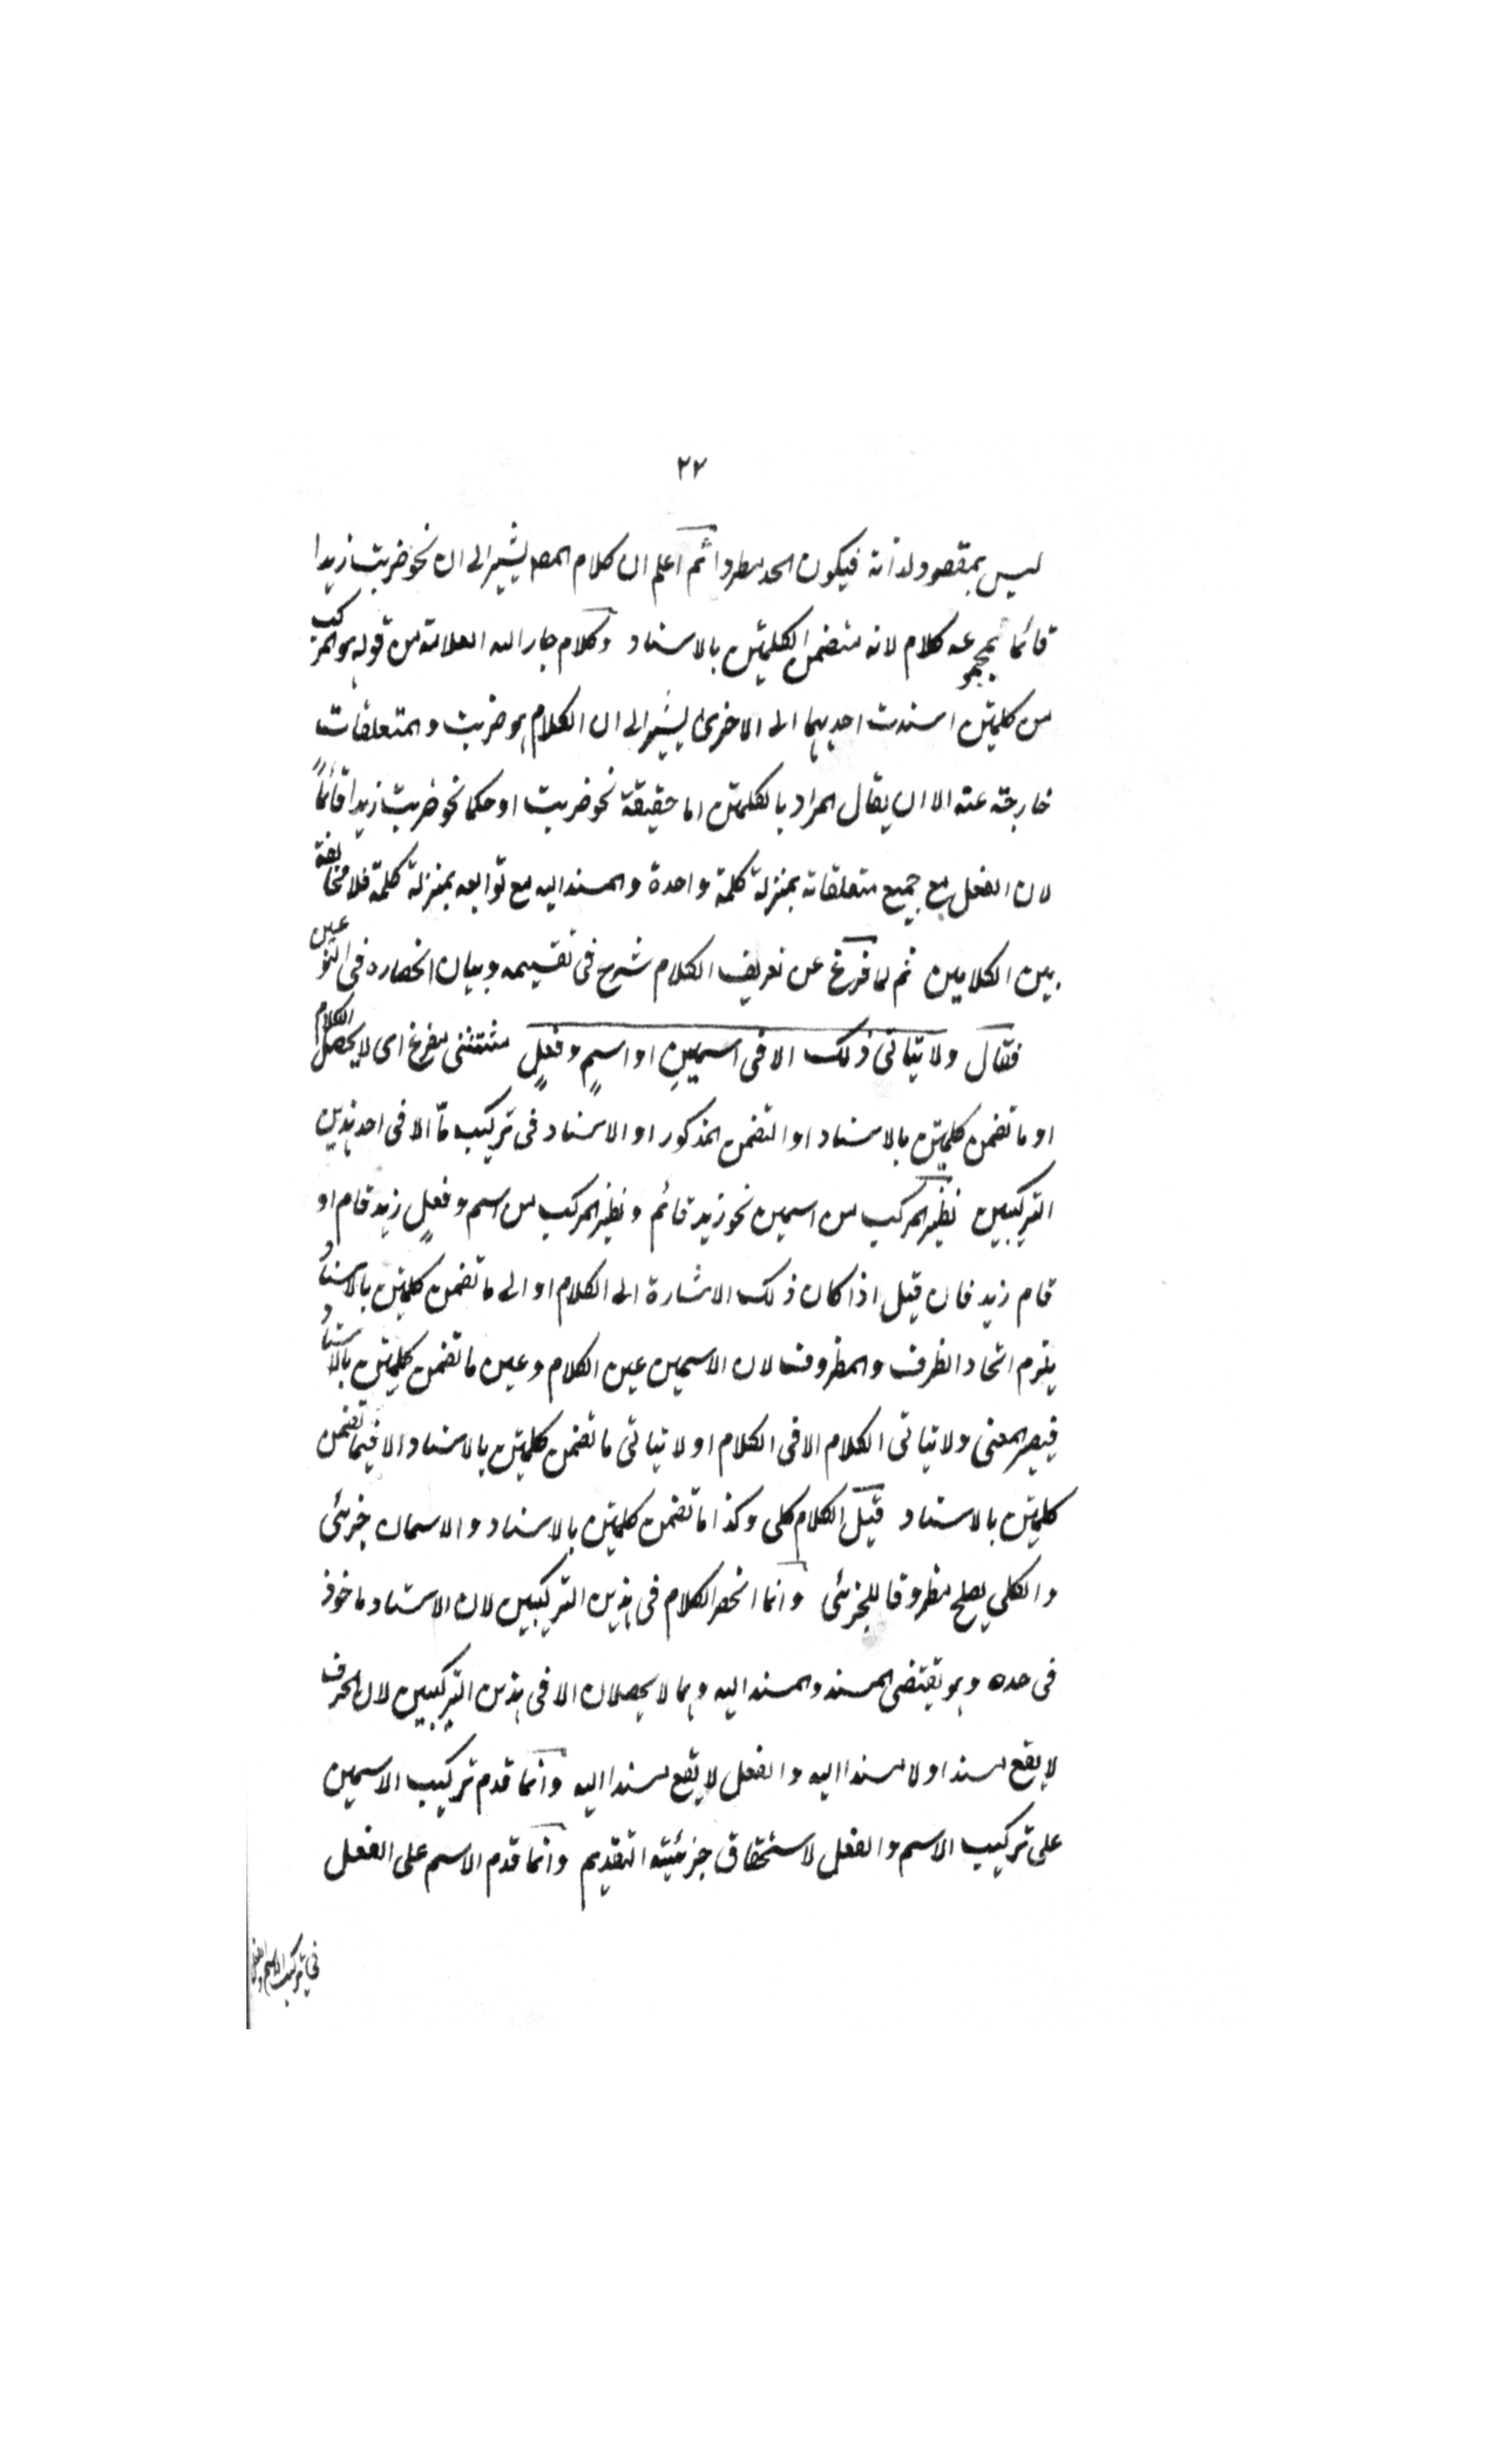 ٢٢
ليس بمقصود لذاته فيكون الحد مطردا ثم اعلم ان كلام المصـ يشير الى ان نحو ضربت زيدا
قائما بمجموعه كلام لانه متضمن الكلمتين بالاسناد وكلام جار الله العلامة من قوله هو المركب
من كلمتين اسندت احديهما الى الاخرى يشير الى ان الكلام هو ضربت والمتعلقات
خارجة عنه الا ان يقال المراد بالكلمتين اما حقيقة نحو ضربت او حكما نحو ضربت زيدا قائماً
لان الفعل مع جميع متعلقاته بمنزلة كلمة واحدة والمسند اليه مع توابعه بمنزلة كلمة فلا مخالفة
بين الكلامين ثم لما فرغ عن تعريف الكلام شرع فى تقسيمه وبيان انحصاره فى النوعين
فقال ولا يتاتى ذلك الا فى اسمينِ او اسمٍ وفعلٍ مستثنى مفرغ اى لا يحصل الكلام
او ما تضمن كلمتين بالاسناد او التضمن المذكور او الاسناد فى تركيب مّا الا فى احد هذين
التركيبين نظير المركب من اسمين نحو زيد قائم ونظير المركب من اسم وفعلٍ زيد قام او
قام زيد فان قيل اذا كان ذلك الاشارة الى الكلام او الى ما تضمن كلمتين بالاسناد
يلزم اتحاد الظرف والمظروف لان الاسمين عين الكلام وعين ما تضمن كلمتين بالاسناد
فيصير المعنى ولا يتاتى الكلام الا فى الكلام او لا يتاتى ما تضمن كلمتين بالاسناد الا فيما تضمن
كلمتين بالاسناد قيل الكلام كلى وكذا ما تضمن كلمتين بالاسناد والاسمان جزئى
والكلي يصلح مظروفا للجزئى وانما انحصر الكلام فى هذين التركيبين لان الاسناد ماخوذ
فى حده وهو يقتضى المسند والمسند اليه وهما لا يحصلان الا فى هذين التركيبين لان الحرف
لا يقع مسندا ولا مسندا اليه والفعل لا يقع مسندا اليه وانما قدم تركيب الاسمين
على تركيب الاسم والفعل لاستحقاق جزئيته التقديم وانما قدم الاسم على الفعل
فى تركيب الاسم والفعل